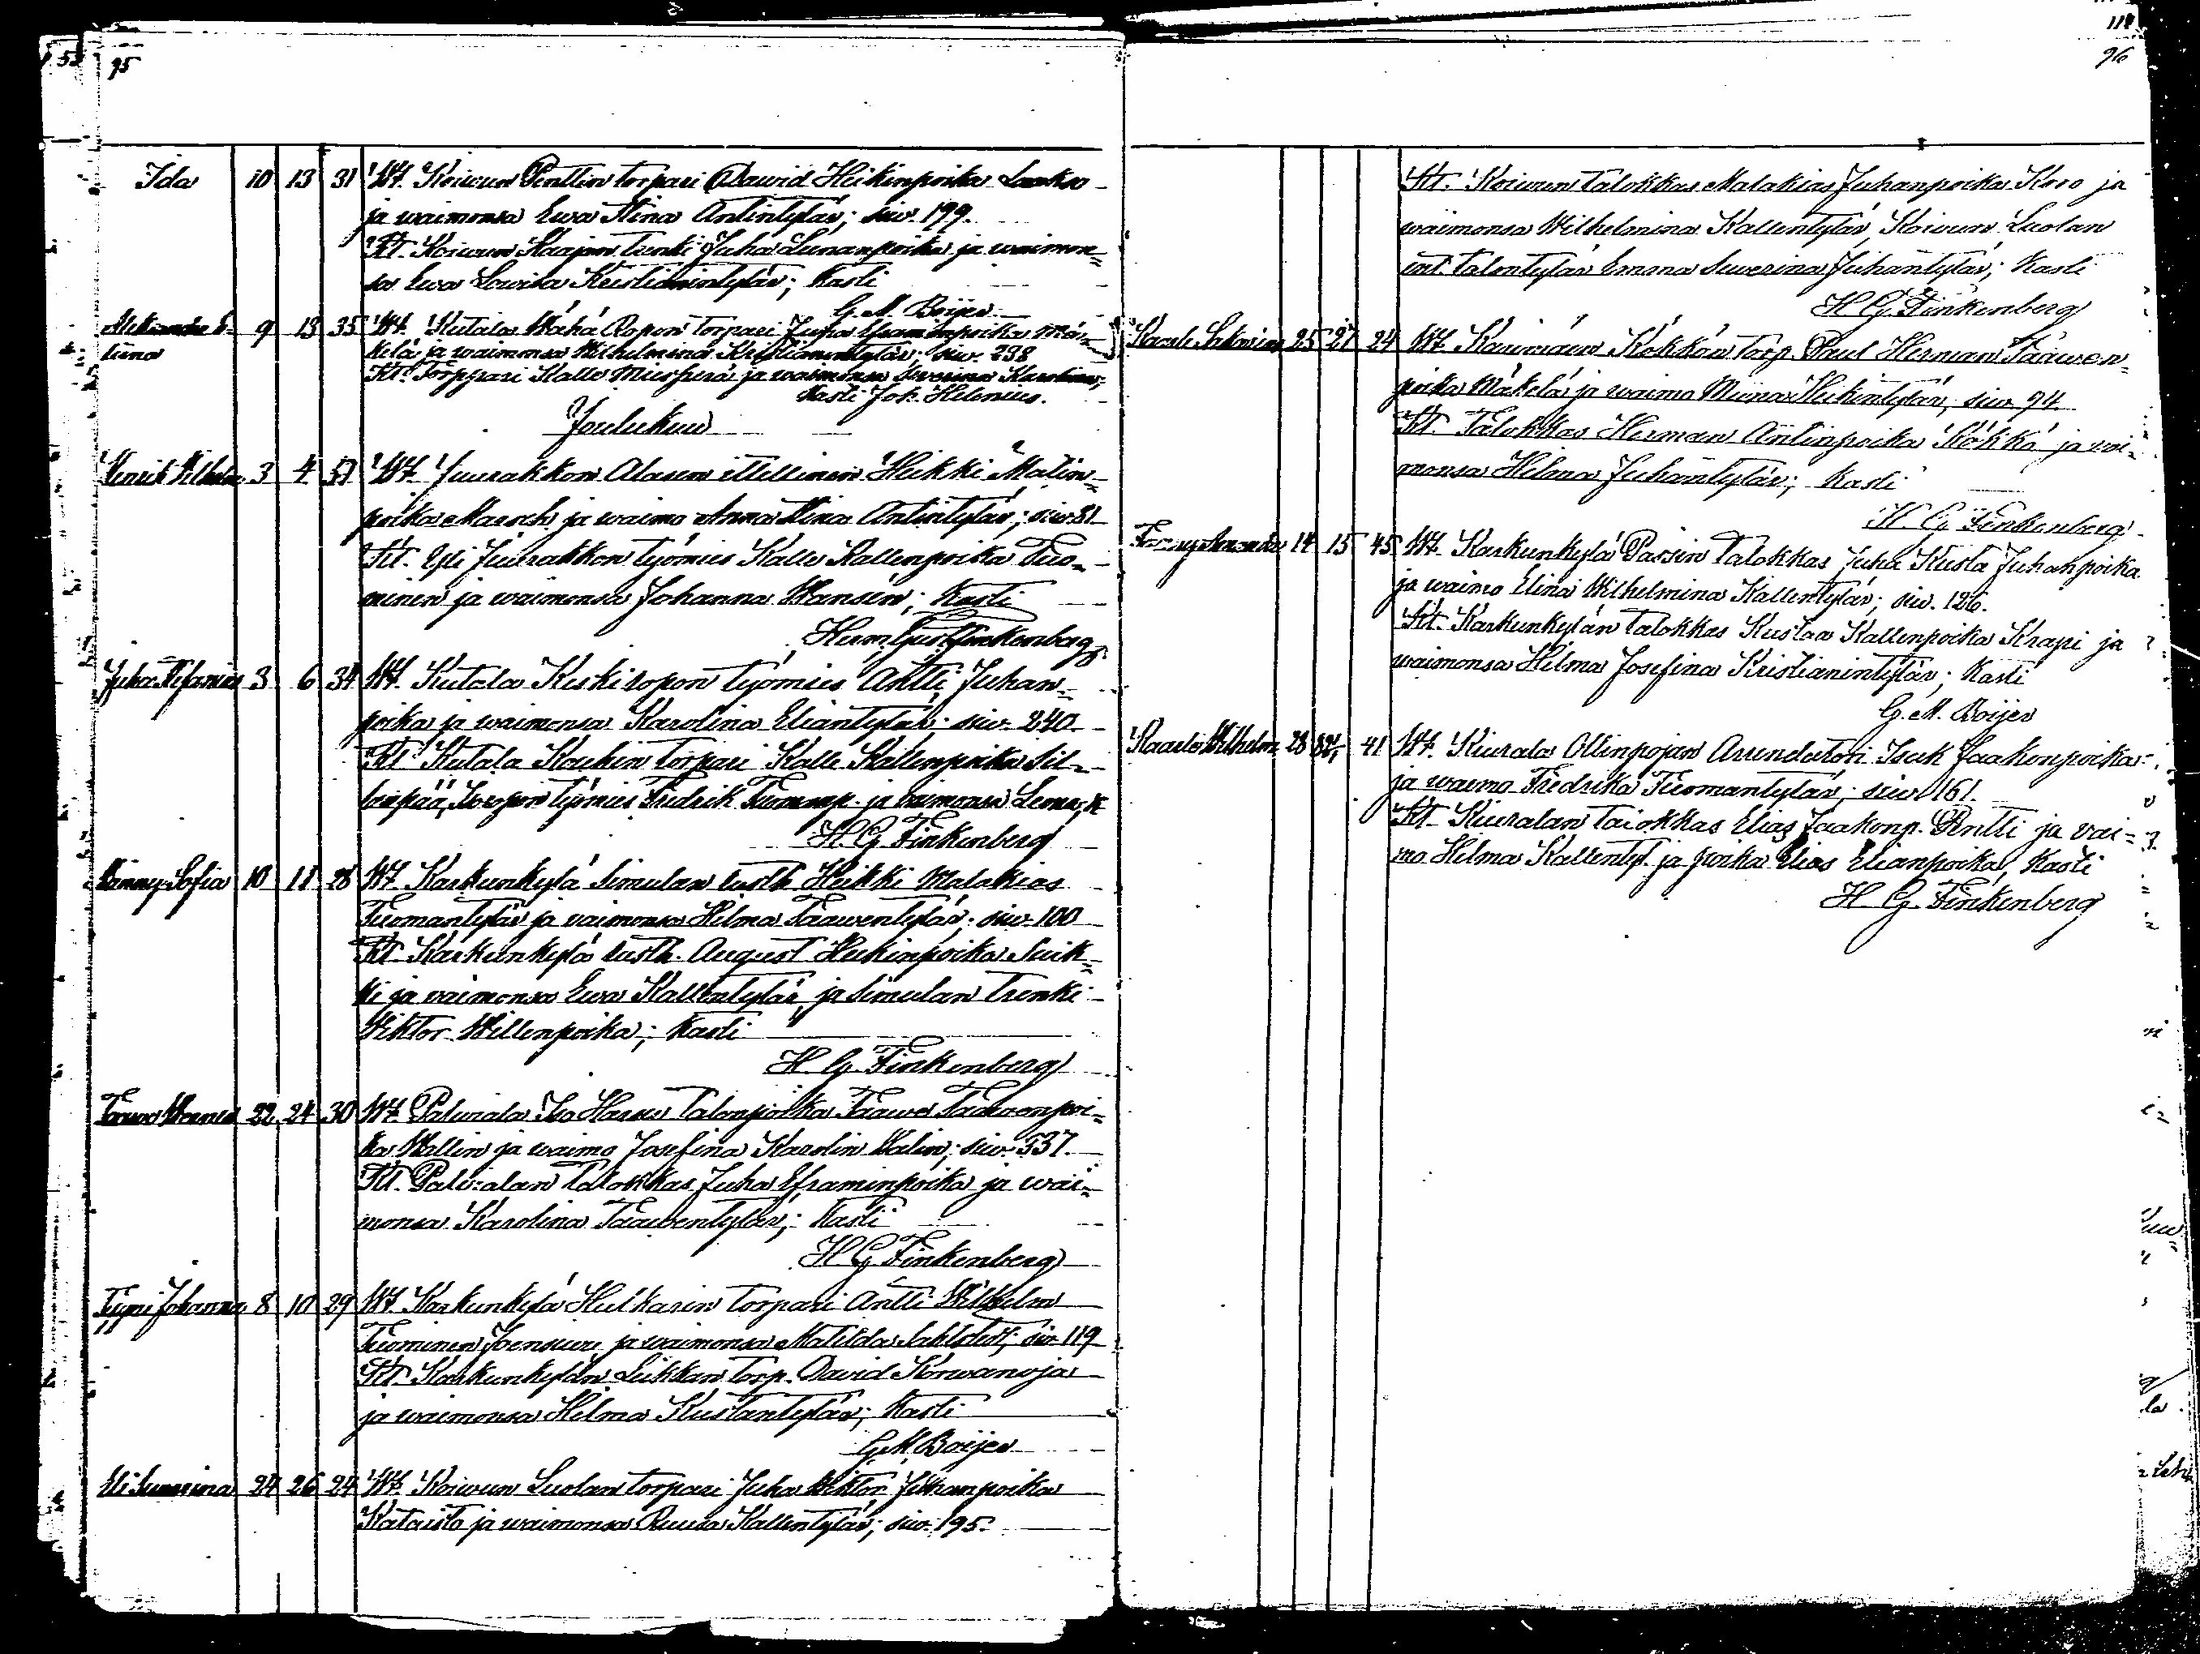 95
Ida 10 13 31 Wt. Koiwun Penttin torpari Dawid Heikinpoika Laakso
ja waimonsa Ewa Stina Antintytär; siw. 199.
Kt. Koiwun Kaajan trenki Juha Leenanpoika ja waimon=
sa Ewa Lowisa Kristianintytär; Kasti
G. M. Boijer
9 13 35 Wt. Kutala Wähä Ropon torpari Juha Efraiminpoika Mä=
kelä ja waimonsa Wilhelmina Kristianintytär; siw. 238
Kt. Torppari Kalle ja waimonsa Severina Karolina;
Kasti Joh. Helenius.
Joulukuu
Henrik Wilhelm 3 4 37 Wt. Juurakkon Alasen itellinen Heikki Matin=
poika ja waimo Anna Stina Antintytär; siw 81
Kt. Yli Juurakkon työmies Kalle Kallenpoika Tuo=
minen ja waimonsa Johanna Hansén; Kasti
Herm Gust Finkenberg
Juho Stefanus 3 6 34 Wt. Kutala Keskiropon työmies Antti Juhan=
poika ja waimonsa Karolina Eliantytär; siw. 240.
Kt. Kutala torpari Kalle Kallenpoika Sil=
lanpää, työmies Fredrik Tuomanp. ja waimonsa Leena, K
H. G. Finkenberg
Fanny Sofia 10 11 28 Wt. Karkunkylä Simulan lusth Heikki Malakias
Tuomantytär ja vaimonsa Helma Taawentytär; siw. 100
Kt. Karkunkylä lusth. August Heikinpoika Suik=
ki ja vaimonsa Ewa Kallentytär, ja Simulan trenki
Wiktor Willenpoika; Kasti
H. G. Finkenberg
Taawo 22 24 30 Wt. Palviala Iso Hassu talonpoika Taawe Taawenpoi=
ka Wallin ja waimo Josefina Karolin Walin; siw. 337.
Kt. Palvialan talokkas Juha Eframinpoika ja wai=
monsa Karolina Taawentytär; Kasti
H G Finkenberg
Tyyni Johanna 8 10 29 Wt. Karkunkylä torpari Antti Wilhelm
Tuominen Joensuu ja waimonsa Matilda Sahlstedt; siw. 119
Kt. Karkunkylän Liukkan torp. David Korwanoja
ja waimonsa Helma Kustantytär; Kasti
G. M. Boijer
24 26 24 Wt. Koiwun Luolan torpari Juha Wiktor Juhanpoika
Kataisto ja waimonsa Ruusa Kallentytär; siw. 195.
96
Kt. Koiwun talokkas Malakias Juhanpoika Koro ja
waimonsa Wilhelmina Kallentytär, Koiwun Luolan
ent. talontytär Emma Severina Juhantytär; Kasti
H. G. Finkenberg
Kaarle Sakarias 25 27 24 Wt. Kökkän torp. Paul Herman Taawen=
poika Mäkelä ja waimo Miina Heikintytär, siw. 94.
Kt. Talokkas Herman Antinpoika Kökkä ja wai=
monsa Helma Juhantytär; Kasti
H. G. Finkenberg
14 15 45 Wt. Karkunkylä Passin talokkas Juha Kusta Juhanpoika
ja waimo Elina Wilhelmina Kallentytär; siw. 126.
Kt. Karkunkylän talokkas Kustaa Kallenpoika Krapi ja
waimonsa Helma Josefina Kristianintytär; Kasti
G. M. Boijer
Kaarlo Wilhelm 28 41 Wt. Kiurala Ollinpojan Arrendatori Isak Jaakonpoika
ja waimo Fredrika Tuomantytär; siw. 161.
Kt. Kiuralan talokkas Elias Jaakonp. Antti ja vai=
mo Helma Kallentyt. ja poika Elias Elianpoika, Kasti
H G. Finkenberg